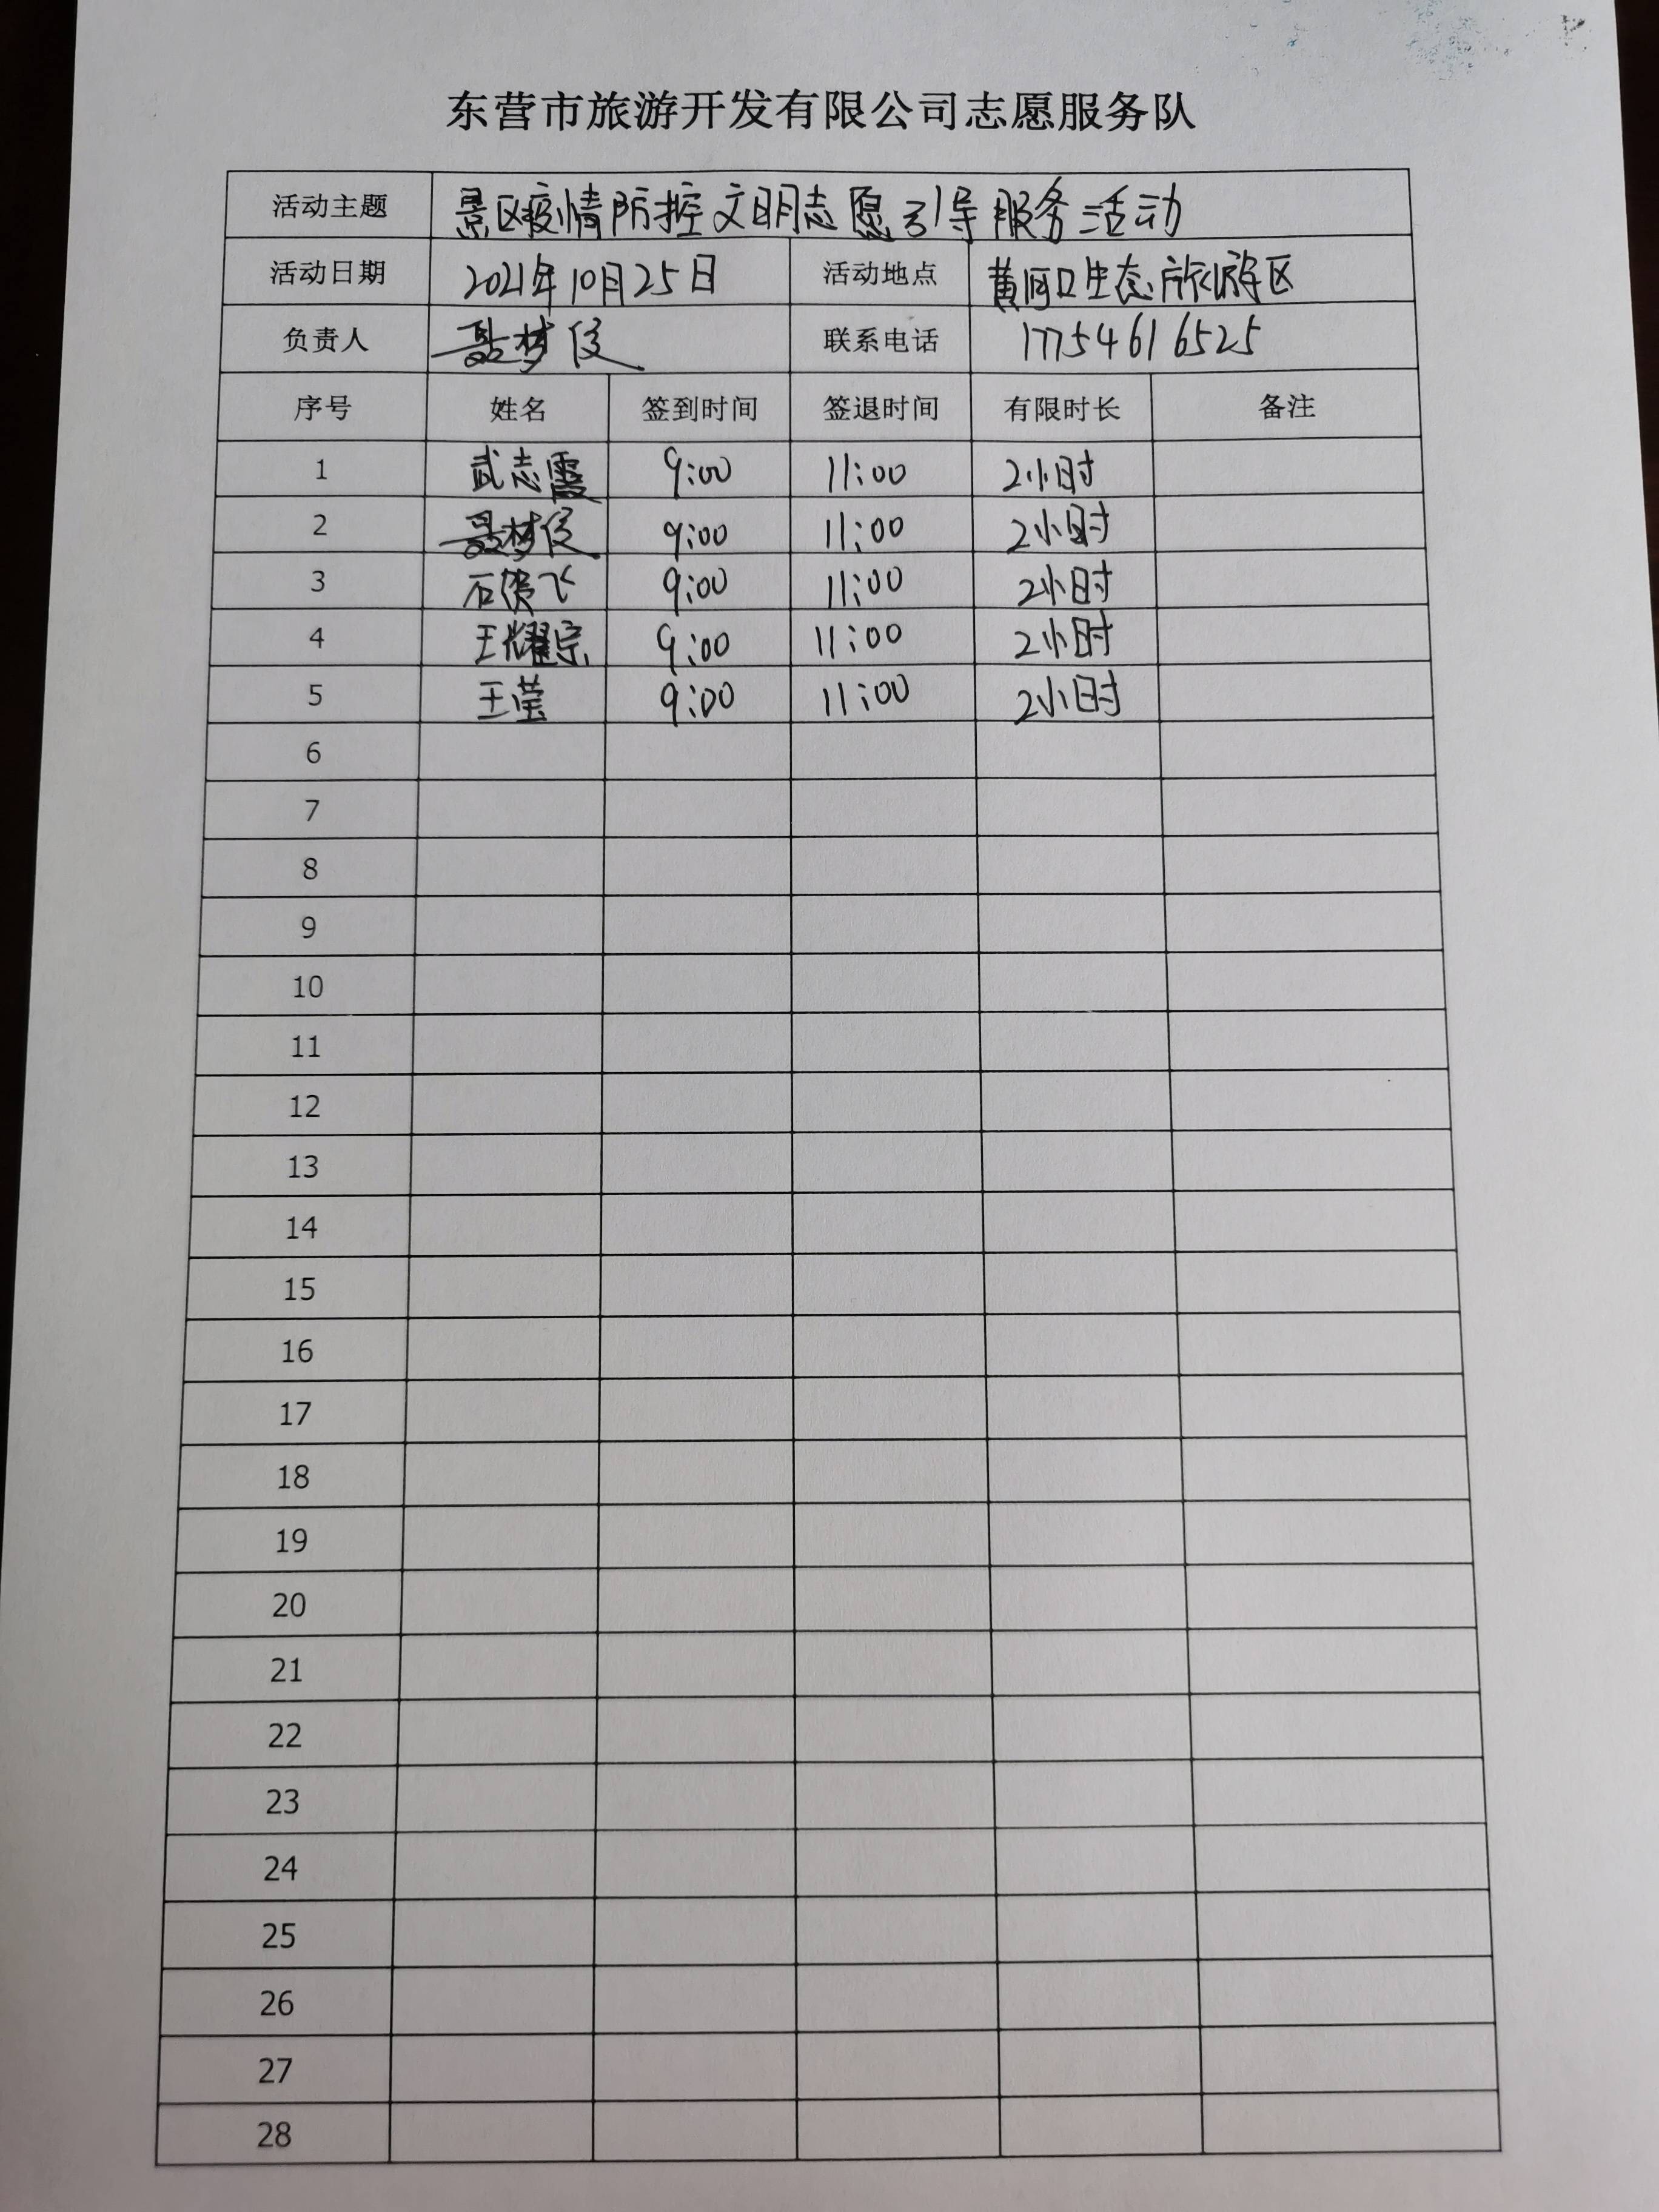 东营市旅游开发有限公司志愿服务队
活动主题 景区疫情防控文明志愿引导服务活动
活动日期 2021年10月25日 活动地点 黄河口生态旅游区
负责人 聂梦俊 联系电话 17754616525
序号 姓名 签到时间 签退时间 有限时长 备注
1 武志霞 9:00 11:00 2小时
2 聂梦俊 9:00 11:00 2小时
3 石 飞 9:00 11:00 2小时
4 王耀宗 9:00 11:00 2小时
5 王莹 9:00 11:00 2小时
6
7
8
9
10
11
12
13
14
15
16
17
18
19
20
21
22
23
24
25
26
27
28